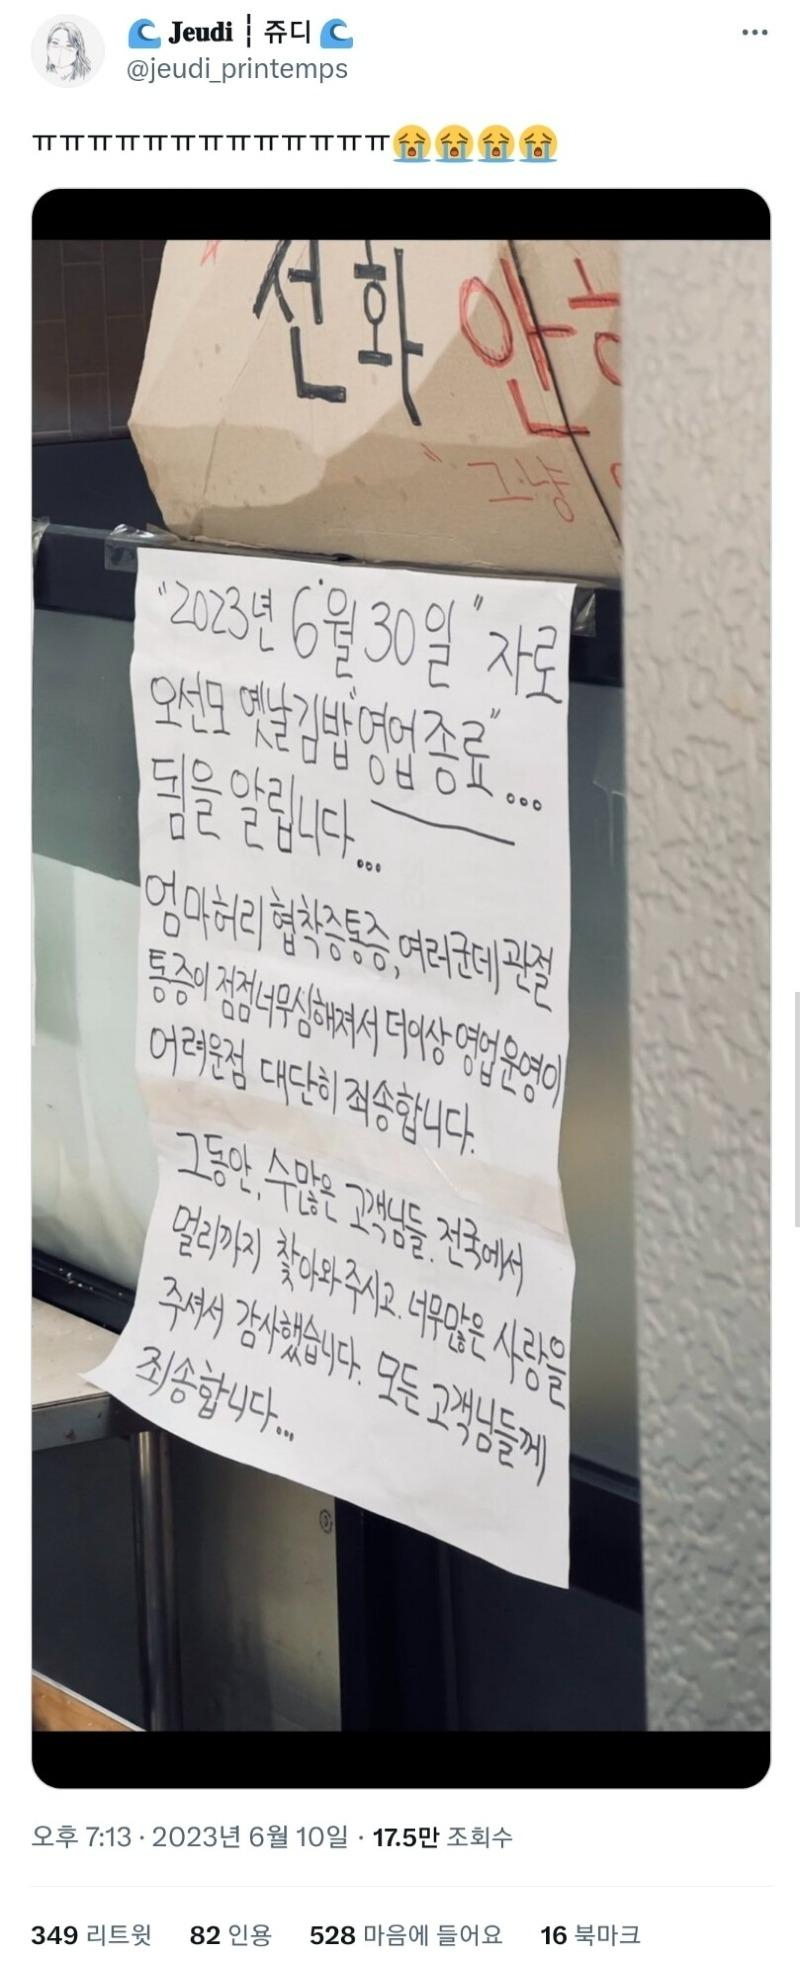 🌊 Jeudi ┊ 쥬디 🌊
@jeudi_printemps
ㅠㅠㅠㅠㅠㅠㅠㅠㅠㅠㅠㅠㅠ😭😭😭😭
전화 안
"그냥
"2023년 6월 30일" 자로
오선모 옛날김밥 "영업종료"...
됨을 알립니다...
엄마허리 협착증통증, 여러군데 관절
통증이 점점너무심해져서 더이상 영업운영이
어려운점 대단히 죄송합니다.
그동안, 수많은 고객님들. 전국에서
멀리까지 찾아와주시고. 너무많은 사랑을
주셔서 감사했습니다. 모든 고객님들께
죄송합니다...
오후 7:13 · 2023년 6월 10일 · 17.5만 조회수
349 리트윗 82 인용 528 마음에 들어요 16 북마크